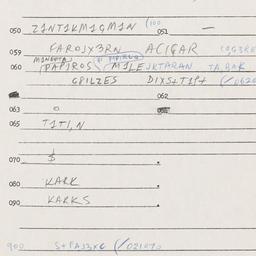 050 Z1NT1KM1GM1N (100 051 —
059 FAROJX3RN ACIGAR
060 PAPIROS M1LEJKTARAN TA,BAK
GPILZES DIXS+T1P+
062
063 o
065 T1TI,N
070 $
080 KARK
090 KARKS
900 S+PAJ3XC (/021070